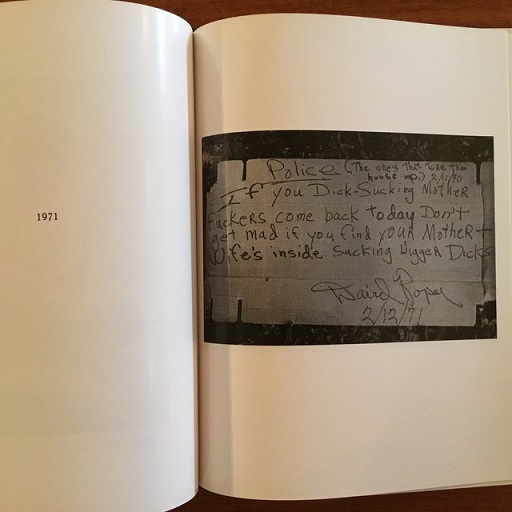 1971
Police (The ones that tore this
house up.) 2/11/70
If you Dick-Sucking Mother
fuckers come back today Don't
get mad if you find your Mother +
Wife's inside Sucking Nigger Dicks
David Roper
2/12/71